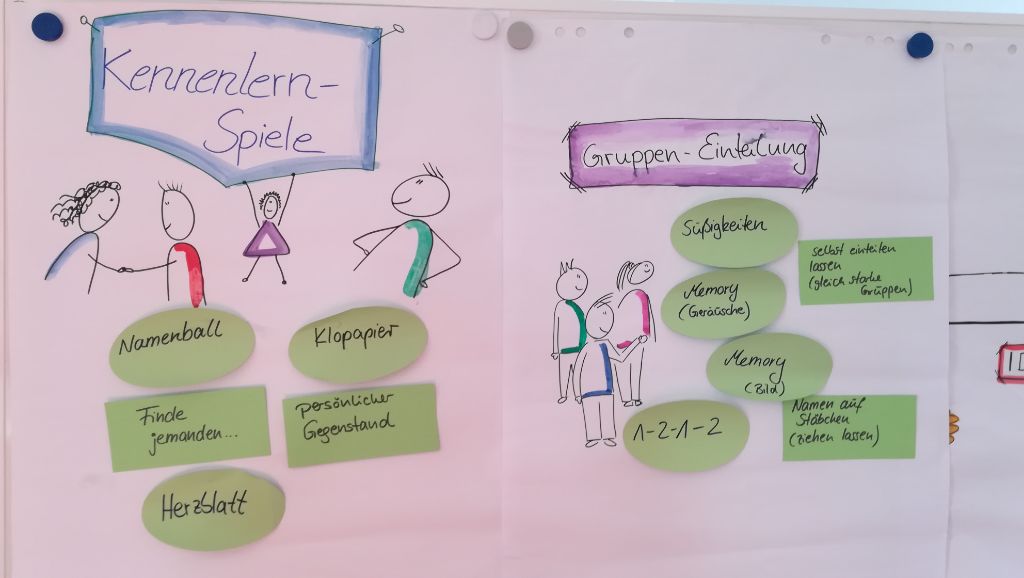 Kennenlern-
Spiele
Namenball
Klopapier
Finde
jemanden...
persönlicher
Gegenstand
Herzblatt
Gruppen-Einteilung
Süßigkeiten
selbst einteilen
lassen
(gleich starke
Gruppen)
Memory
(Geräusche)
Memory
(Bild)
Namen auf
Stäbchen
(ziehen lassen)
1-2-1-2